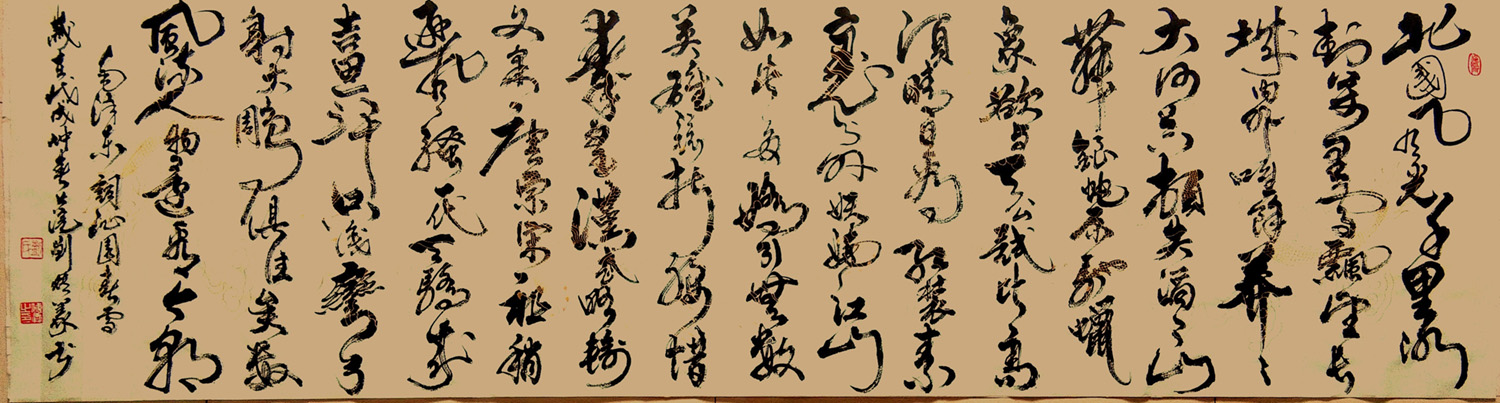 北國風光千里冰
封萬里雪飄望長
城内外唯餘莽〻
大河上下頓失滔〻山
舞銀蛇原馳蠟
象欲與天公試比高
須晴日看紅裝素
裹分外妖嬈江山
如此多嬌引無數
英雄競折腰惜
秦皇漢武略輸
文采唐宗宋祖稍
遜風騷一代天驕成
吉思汗只識彎弓
射大雕俱往矣數
風流人物還看今朝
毛澤東詞沁園春雪
歲在戊戌仲春劉書